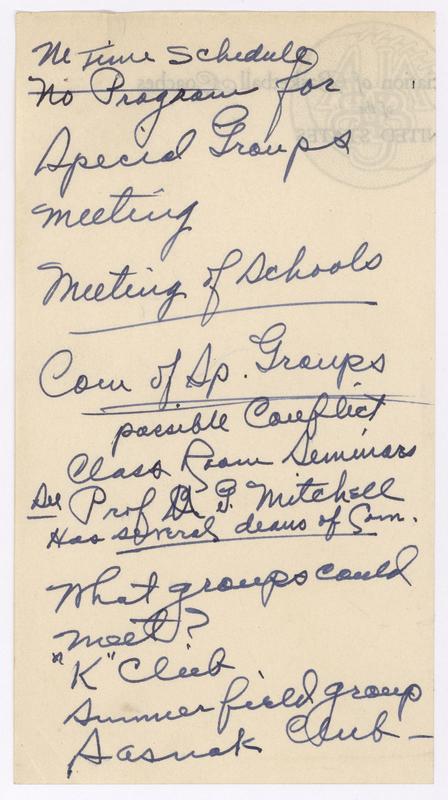 Time Schedule
No Program for
Special Groups
meeting
Meeting of Schools
Com of Sp. Groups
possible Conflict
Class Room Seminars
See Prof G. Mitchell
Has several deans of Sum.
What groups could
meet?
"K" Club
Summerfield group
Sasnak Club —